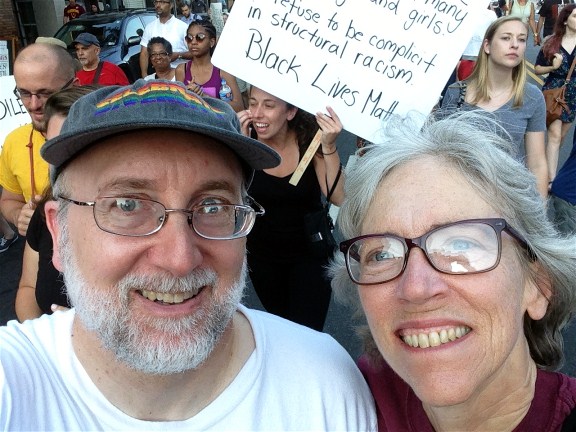 many
and girls.
refuse to be complicit
in structural racism.
Black Lives Matt